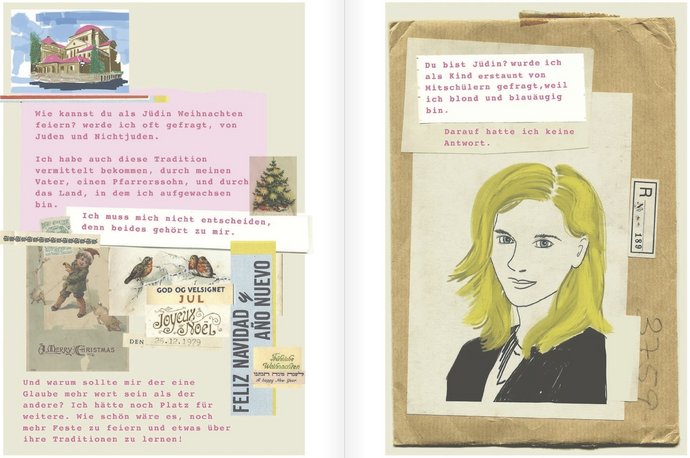 Wie kannst du als Jüdin Weihnachten
feiern? werde ich oft gefragt, von
Juden und Nichtjuden.
Ich habe auch diese Tradition
vermittelt bekommen, durch meinen
Vater, einen Pfarrerssohn, und durch
das Land, in dem ich aufgewachsen
bin.
Ich muss mich nicht entscheiden,
denn beides gehört zu mir.
GOD OG VELSIGNET
JUL
Joyeux
Noël
DEN 25.12.1979
A MERRY CHRISTMAS
FELIZ NAVIDAD y
AÑO NUEVO
Fröhliche
Weihnachten
A happy New Year
Und warum sollte mir der eine
Glaube mehr wert sein als der
andere? Ich hätte noch Platz für
weitere. Wie schön wäre es, noch
mehr Feste zu feiern und etwas über
ihre Traditionen zu lernen!
Du bist Jüdin? wurde ich
als Kind erstaunt von
Mitschülern gefragt,weil
ich blond und blauäugig
bin.
Darauf hatte ich keine
Antwort.
R
No 189
2759